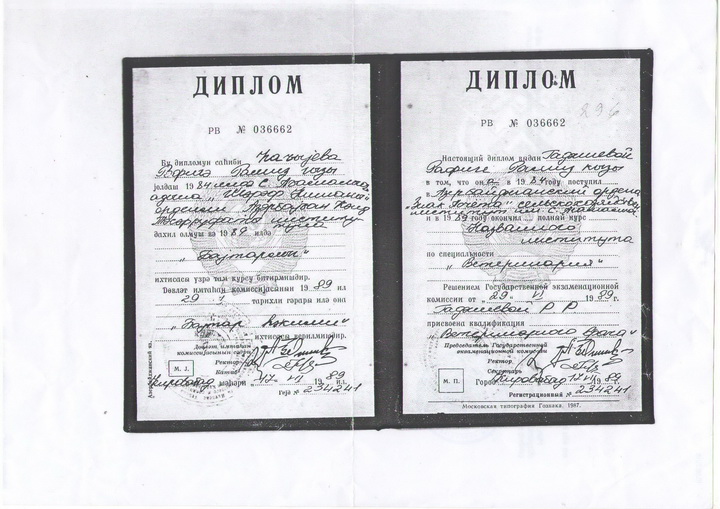 ДИПЛОМ
РВ № 036662
Бу дипломун саһиби Һаҹыјева
Рәфигә Рамиз гызы
јолдаш 1984-ҹү илдә С. Ағамалыоғлу
адына „Шәрәф Нишаны"
орденли Азәрбајҹан Кәнд
Тәсәррүфаты институту
дахил олмуш вә 1989 илдә
„Бајтарлыг"
ихтисасы үзрә там курсу битирмишдир.
Дөвләт имтаһан комиссијасынын 1989 ил
29 тарихли гәрары илә она
„Бајтар һәкими"
ихтисасы верилмишдир.
Дөвләт имтаһан
комиссијасынын сәдри
Ректор
Катиб
М. Ј.
Кировабад шәһәри 17 VII 1989 ил.
Гејд № 234241
ДИПЛОМ
296
РВ № 036662
Настоящий диплом выдан Гаджиевой
Рафиге Рамиз кызы
в том, что она в 1984 году поступил
в Азербайджанский ордена
„Знак Почета" сельскохозяйств.
институт им. С. Агамалиоглы
и в 1989 году окончил полный курс
названного
института
по специальности
„Ветеринария"
Решением Государственной экзаменационной
комиссии от „29" VI 1989 г.
Гаджиевой Р Р
присвоена квалификация
„Ветеринарного врача"
Председатель Государственной
экзаменационной комиссии
Ректор
Секретарь
М. П.
Город Кировабад 17 VII 1989
Регистрационный № 234241
Московская типография Гознака. 1987.